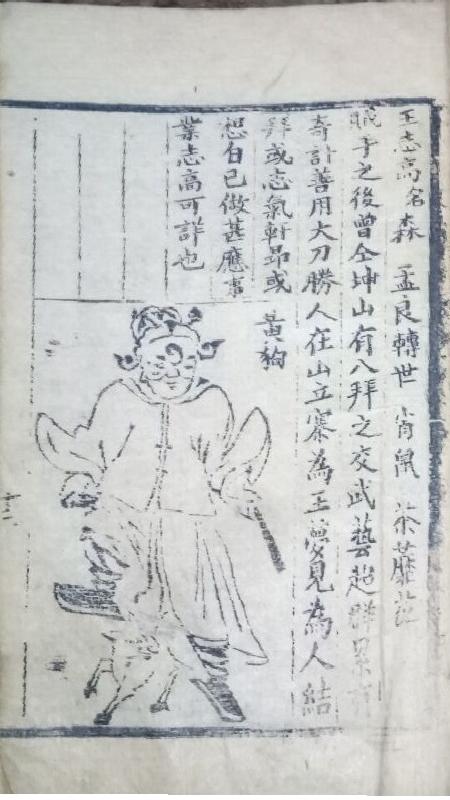 王志高名森 孟良轉世 肖鼠 茶蘼花
賊子之後曾仝坤山有八拜之交武藝超群累有
奇計善用大刀勝人在山立寨為王夢見為人結
拜或志氣軒昂或
想自己做甚應事
業志高可詳也
黃狗